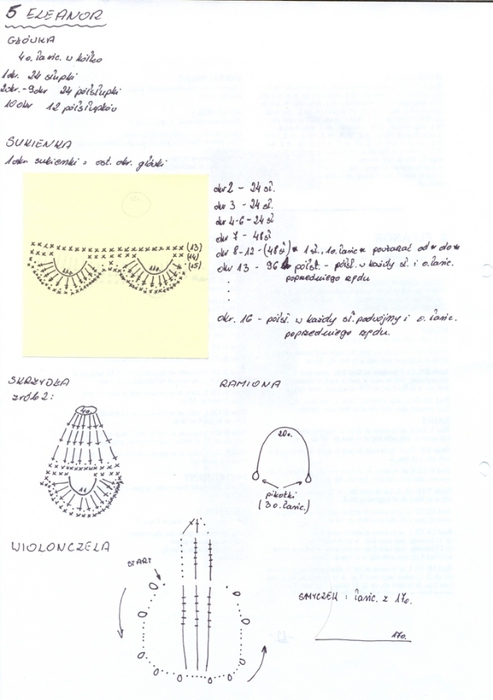 5 ELEANOR
GŁÓWKA
4 o. łańc. w kółko
1 okr. 24 słupki
2 okr. - 9 okr 24 półsłupki
10 okr 12 półsłupków
SUKIENKA
1 okr. sukienki = ost. okr. główki
okr 2 - 24 sł.
okr 3 - 24 sł.
okr 4-6 - 24 sł
okr 7 - 48 sł
okr 8-12 - (48 sł) * 1 sł, 1 o. łańc * powtarzać od * do *
okr 13 - 96 półsł. - półsł. w każdy sł. i o. łańc.
poprzedniego rzędu
okr. 16 - półsł. w każdy sł. podwójny i o. łańc.
poprzedniego rzędu.
(13)
(14)
(15)
SKRZYDŁA
zrób 2:
4o
RAMIONA
20o.
pikotki
(3 o. łańc.)
WIOLONCZELA
START
SMYCZEK : łańc. z 17o.
17o.